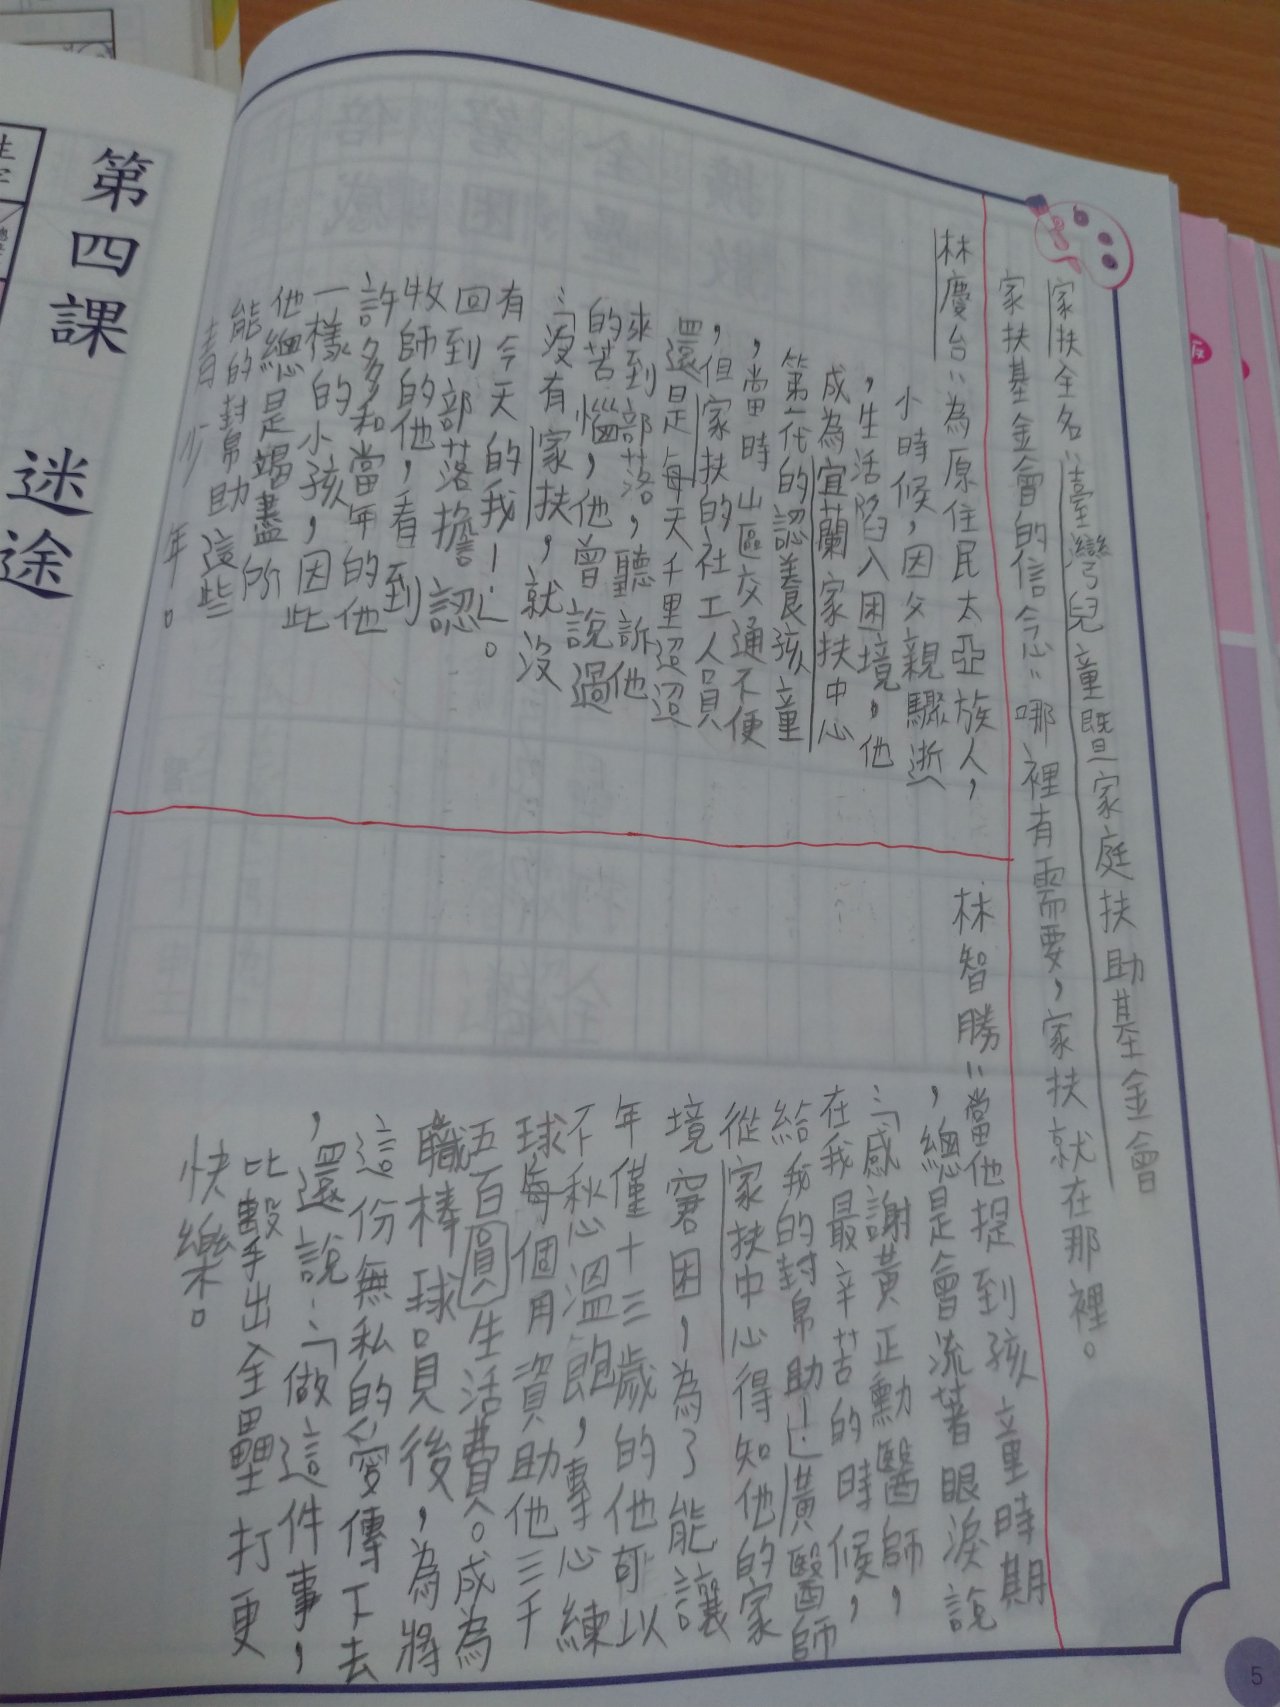 家扶全名：臺灣兒童暨家庭扶助基金會
家扶基金會的信念：哪裡有需要，家扶就在那裡。
林慶台：為原住民太亞族人，
小時候，因父親驟逝
，生活陷入困境，他
成為宜蘭家扶中心
第一代的認養孩童
，當時山區交通不便
，但家扶的社工人員
還是每天千里迢迢
來到部落，聽訴他
的苦惱，他曾說過
：「沒有家扶，就沒
有今天的我！」。
回到部落擔認
牧師的他，看到
許多和當年的他
一樣的小孩，因此
他總是竭盡所
能的幫助這些
青少年。
林智勝：當他提到孩童時期
，總是會流著眼淚說
：「感謝黃正勳醫師，
在我最辛苦的時候，
給我的幫助！」黃醫師
從家扶中心得知他的家
境窘困，為了能讓
年僅十三歲的他可以
不愁溫飽，專心練
球每個月資助他三千
五百圓生活費。成為
職棒球員後，為將
這份無私的愛傳下去
，還說：「做這件事，
比擊出全壘打更
快樂。
第四課
迷途
5